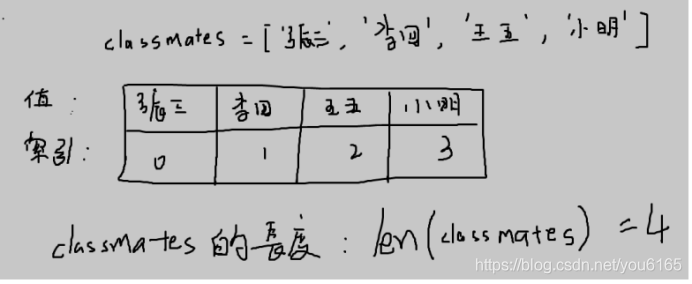 classmates = ['张三', '李四', '王五', '小明']
值: 张三 李四 王五 小明
索引: 0 1 2 3
classmates 的长度: len(classmates) = 4
https://blog.csdn.net/you6165